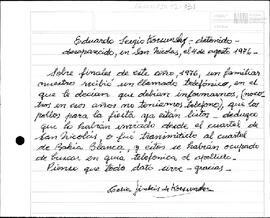 Eduardo Sergio Korsunsky - detenido -
desaparecido, en San Nicolás, el 4 de agosto 1976 -
Sobre finales de este año, 1976, un familiar
nuestro recibió un llamado telefónico, en el
que le decían que debían informarnos, (noso
tros en esos años no teníamos teléfono), que los
pollos para la fiesta ya están listos - deduzco
que lo habrán enviado desde el cuartel de
San Nicolás, o fué transmitido al cuartel
de Bahía Blanca, y éstos se habrán ocupado
de buscar en guía telefónica el apellido -
Pienso que todo dato sirve - gracias -
de Korsunsky